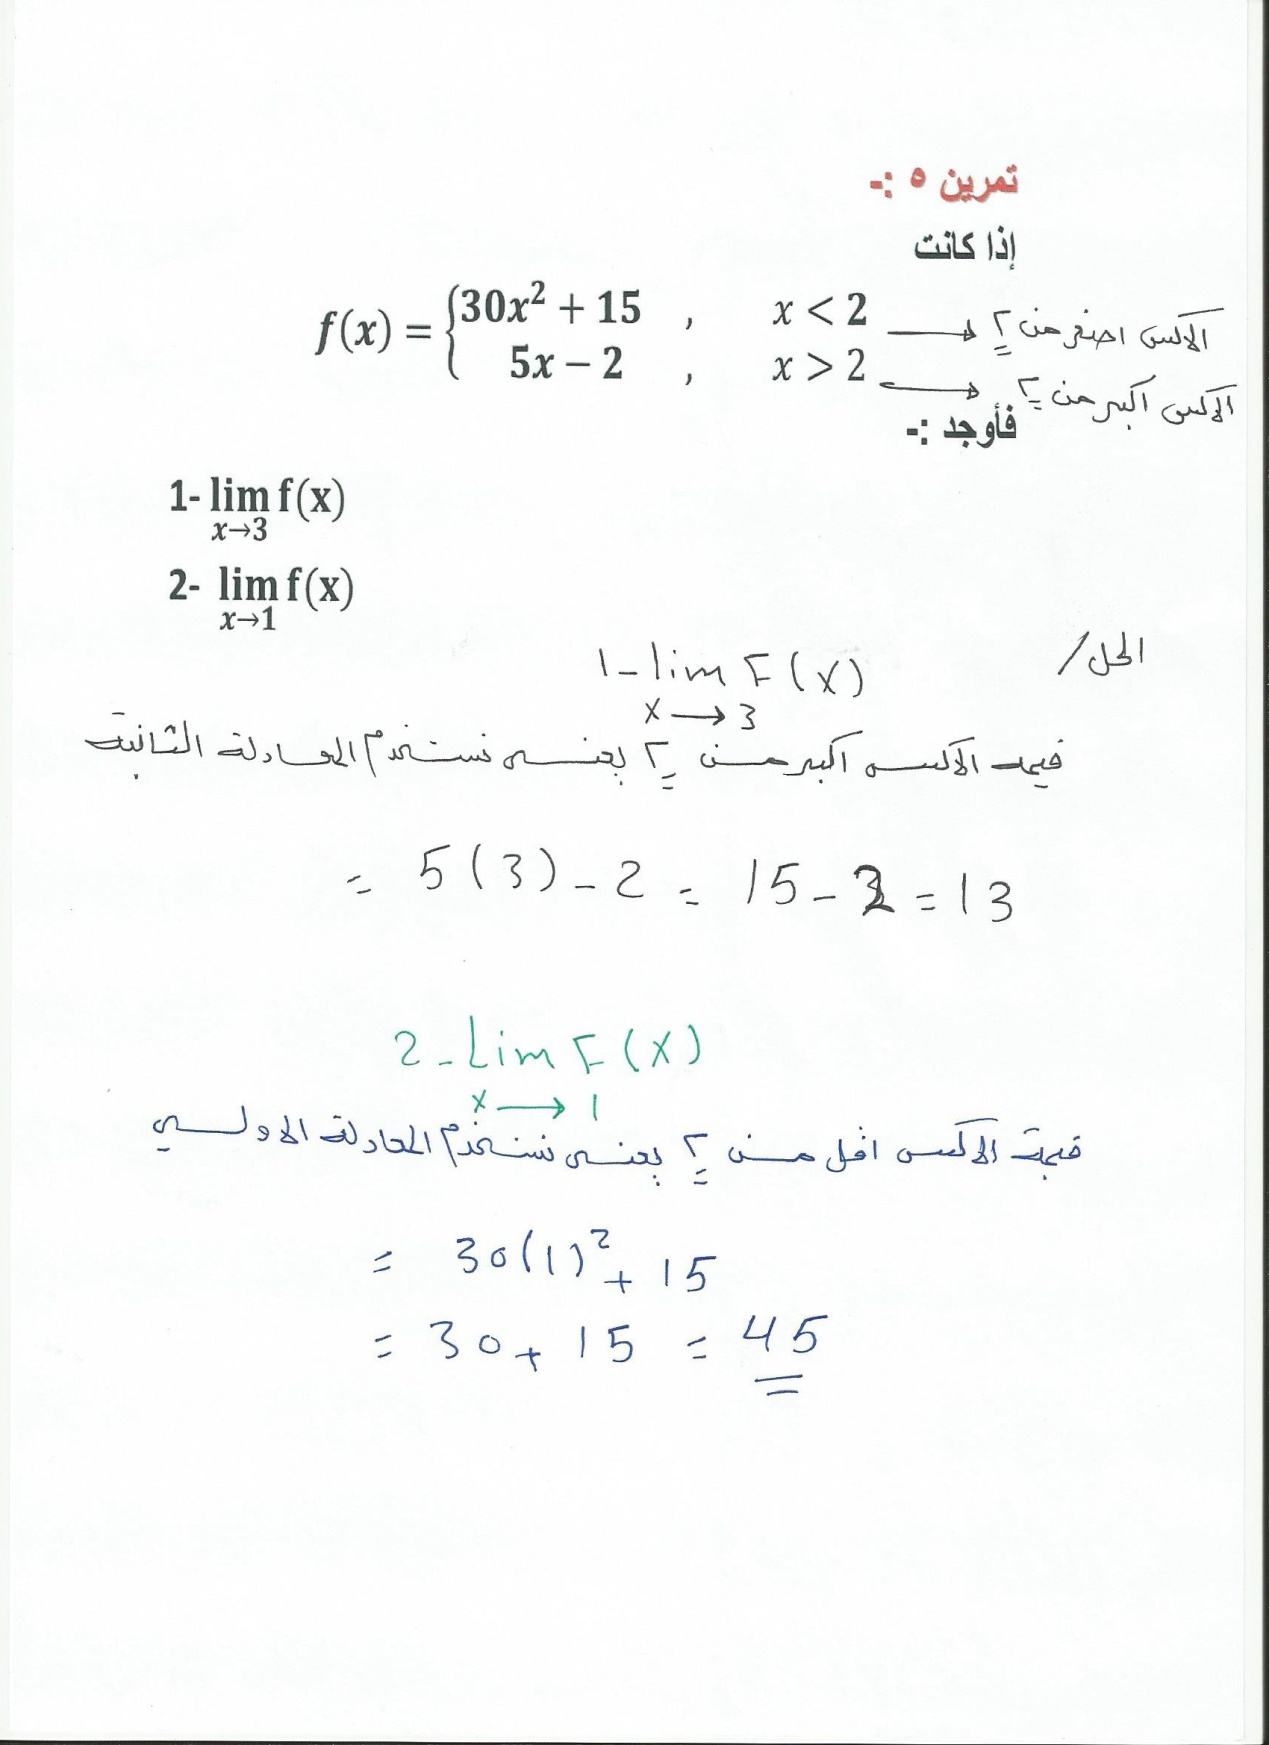 تمرين ٥ :-
إذا كانت
f(x) = {30x² + 15 , x < 2 → الاكس اصغر من ٢
5x − 2 , x > 2 → الاكس اكبر من ٢
فأوجد :-
1- lim f(x)
x→3
2- lim f(x)
x→1
الحل /
1- lim F(x)
x → 3
قيمة الاكس اكبر من ٢ يعني نستخدم المعادلة الثانية
= 5(3) - 2 = 15 - 2 = 13
2- Lim F(x)
x → 1
قيمة الاكس اقل من ٢ يعني نستخدم المعادلة الاولى
= 30(1)² + 15
= 30 + 15 = 45